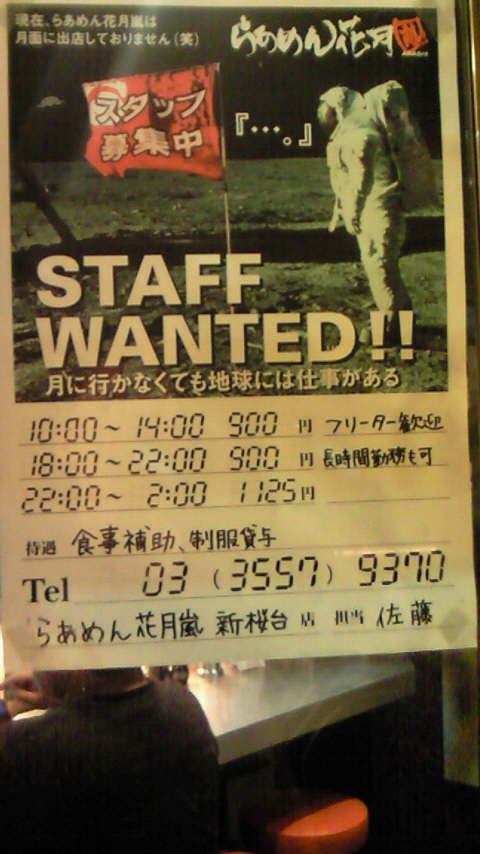 現在、らあめん花月嵐は
月面に出店しておりません(笑)
らあめん花月嵐
スタッフ
募集中
『…。』
STAFF
WANTED!!
月に行かなくても地球には仕事がある
10:00~14:00 900 円 フリーター歓迎
18:00~22:00 900 円 長時間勤務も可
22:00~ 2:00 1125円
待遇 食事補助、制服貸与
Tel 03 (3557) 9370
らあめん花月嵐 新桜台 店 担当 佐藤